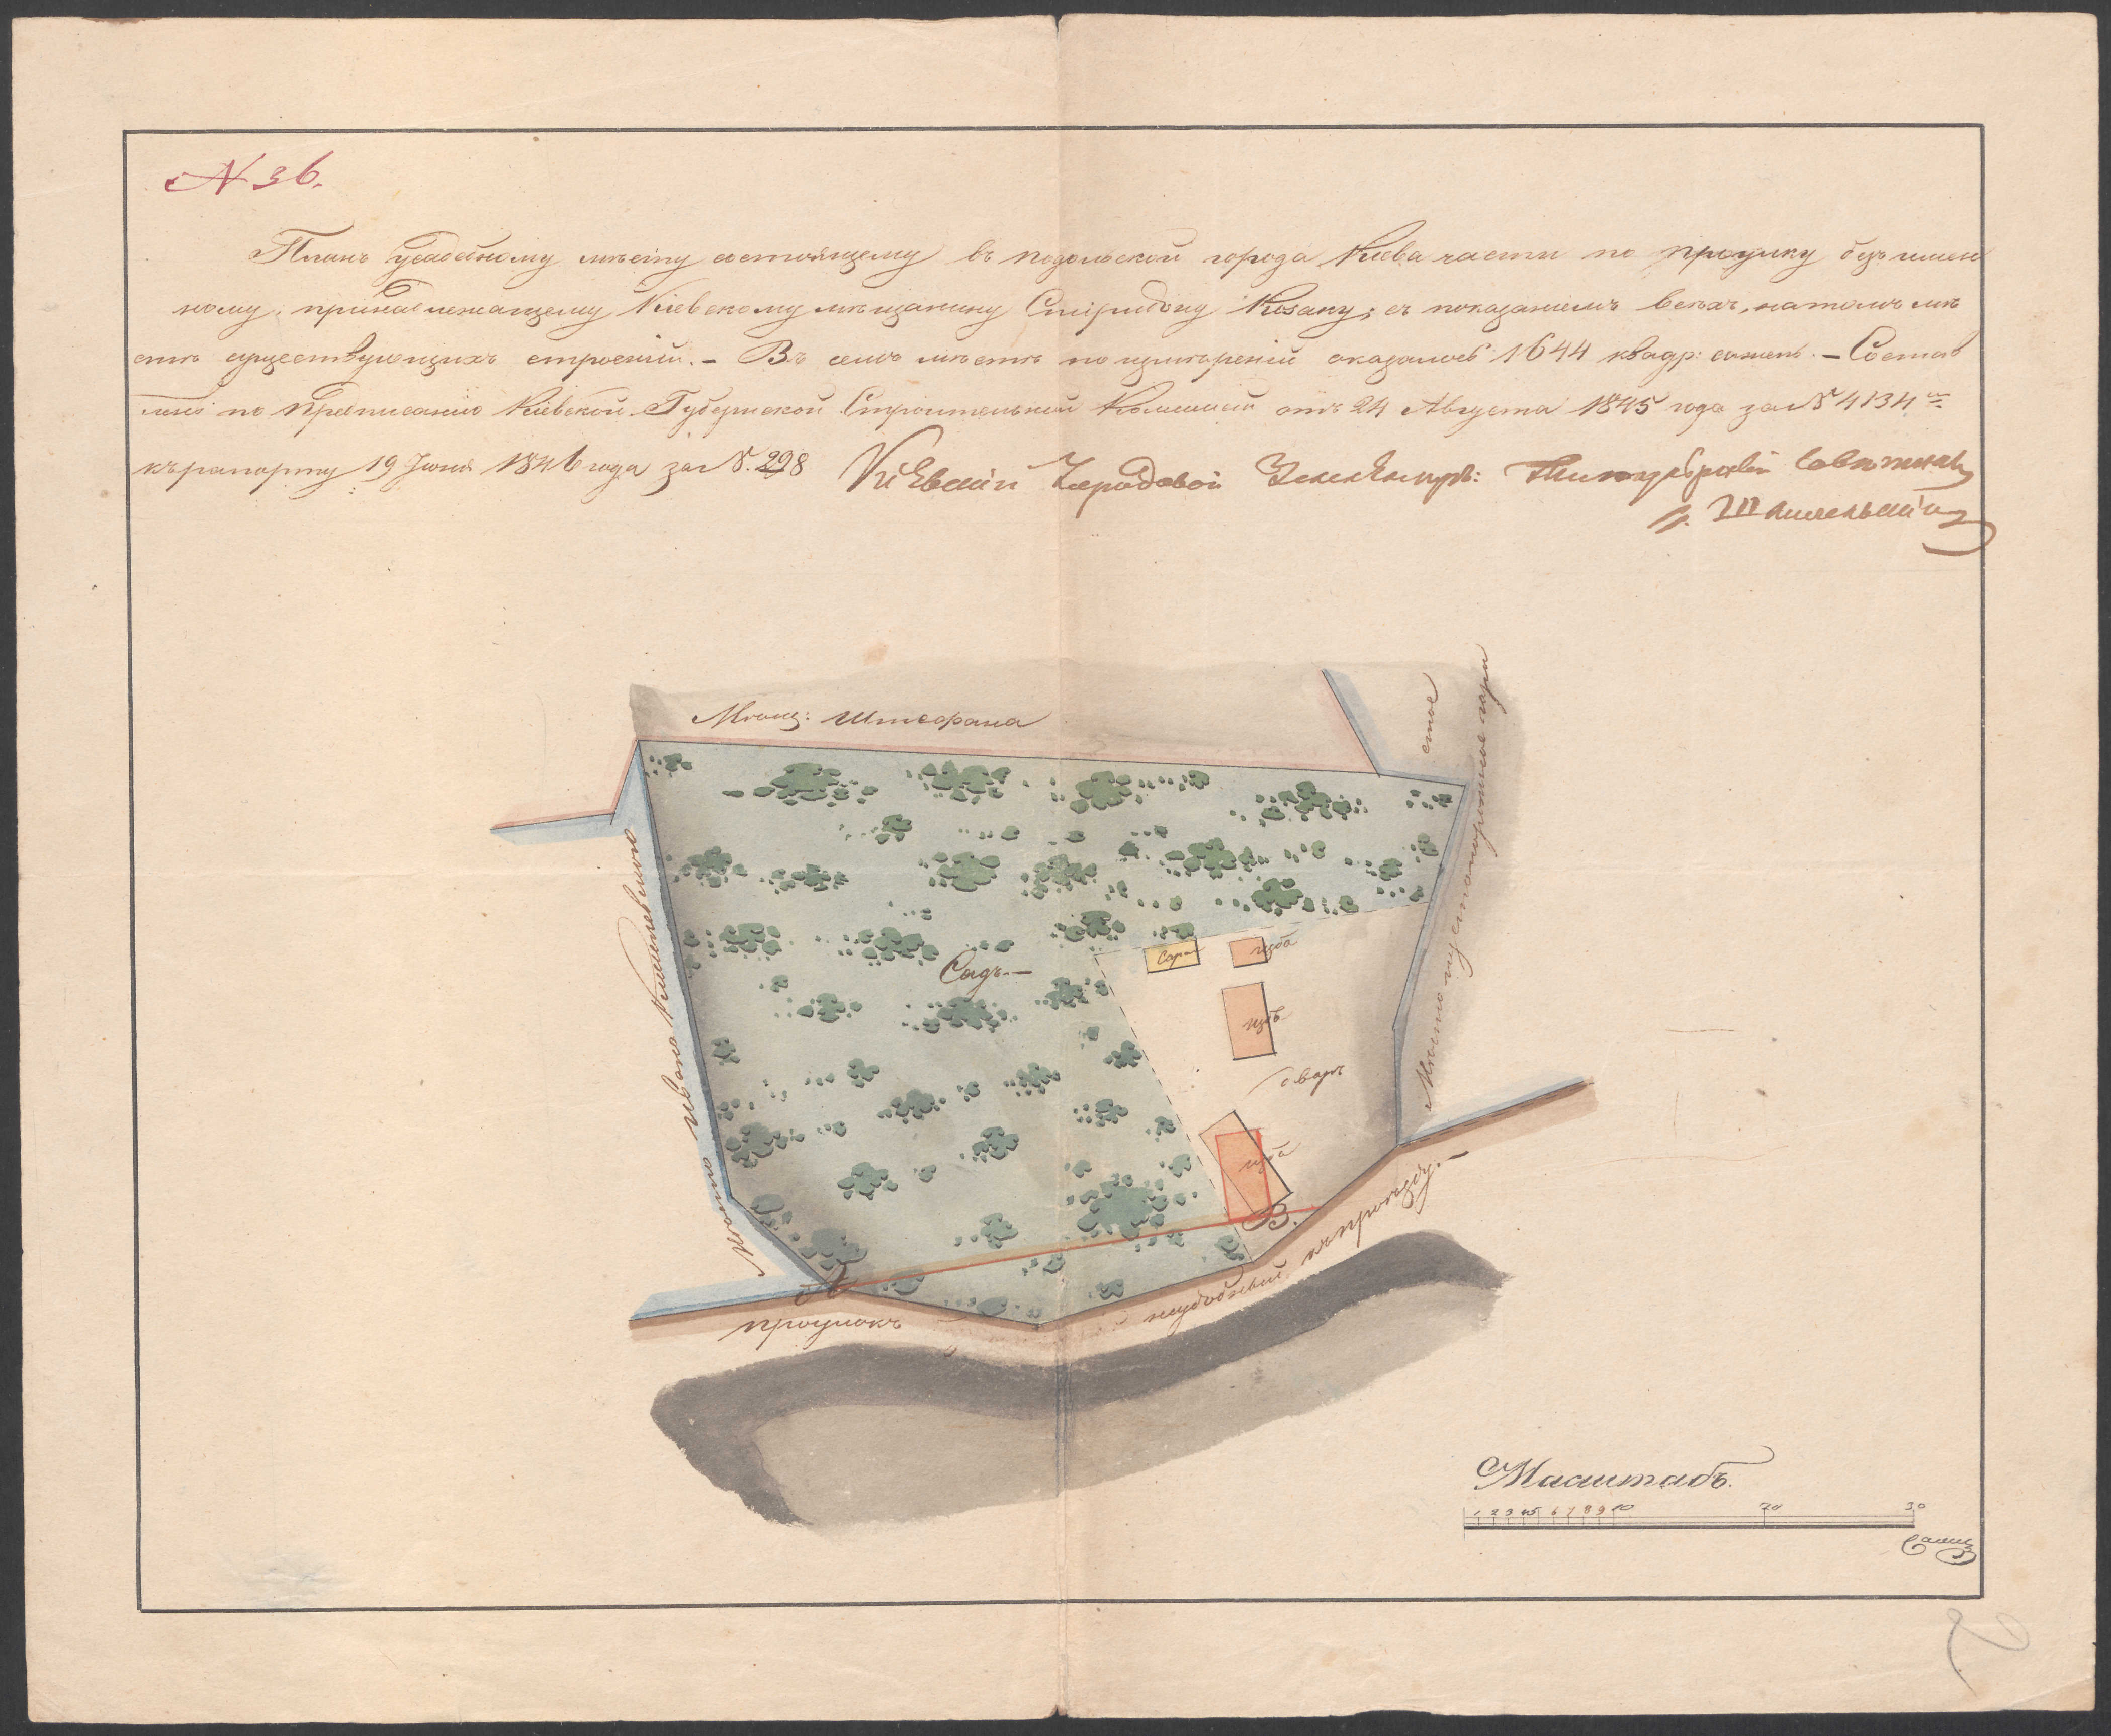 N 36.
Планъ усадебному мѣсту состоящему въ подольской города Кіева части по проулку безъимен
ному, принадлежащему Кіевскому мѣщанину Спиридону Козаку, съ показаніемъ всѣхъ, на томъ мѣ
стѣ существующихъ строеній. – Въ семъ мѣстѣ по измѣреній оказалось 1644 квадр: сажень. – Состав
лено по предписанію Кіевской Губернской Строительной Коммисіи отъ 24 Августа 1845 года за N 4134
къ рапорту 19 Іюня 1846 года за N. 298 Кіевскій Городовой Землемѣръ:
Мѣщ: Штефана
стое
Мѣсто пустопорожнее гори
мѣсто Ивана
Садъ
Сар
изба
изба
дворъ
изба
А
В.
проулокъ
неудобный къ проѣзду.
Масштабъ.
1 2 3 4 5 6 7 8 9 10 20 30
Саж
2